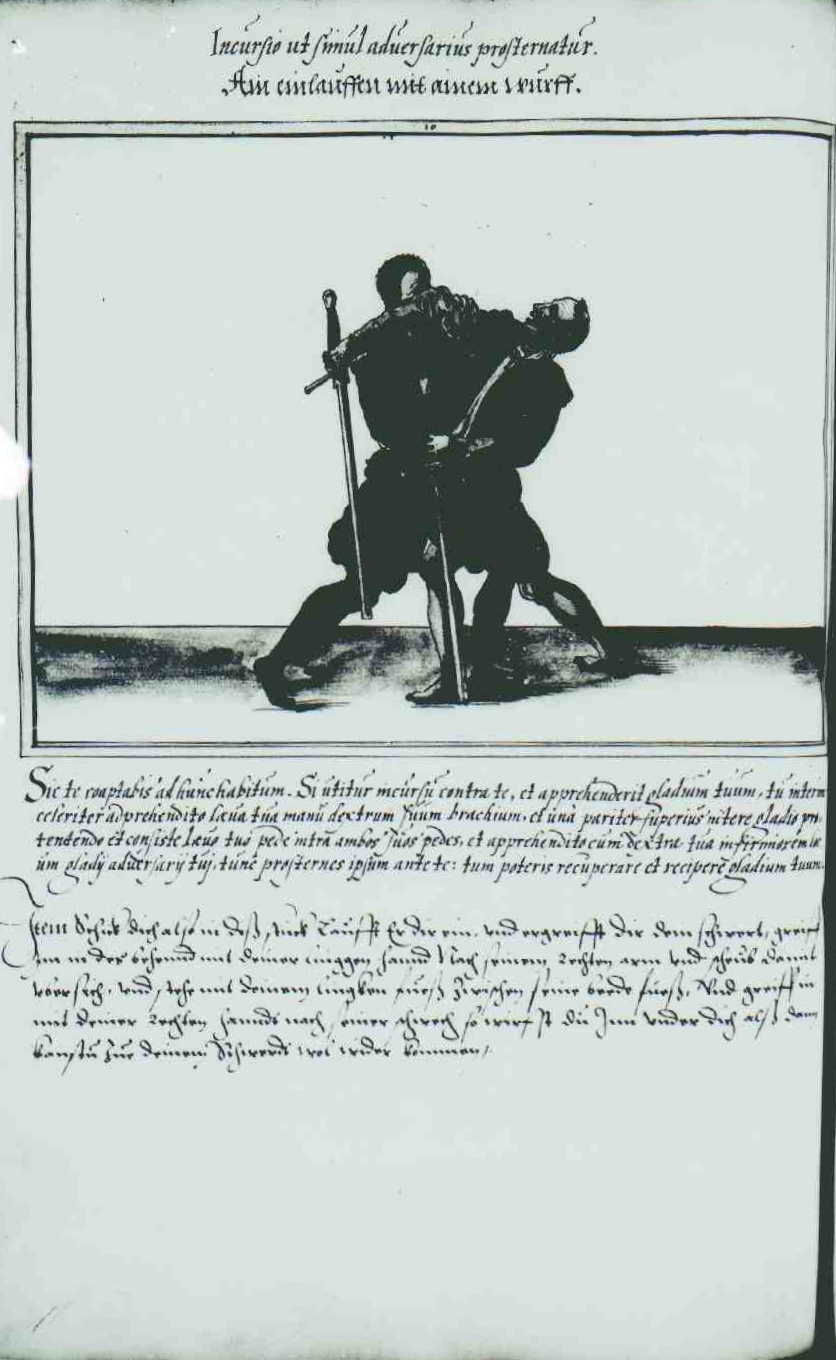 Incursio ut simul adversarius prosternatur.
Ain einlauffen mit ainem wurff.
10
Sic te coaptabis ad hunc habitum. Si utitur incursu contra te, et apprehenderit gladium tuum, tu interim
celeriter adprehendito læva tua manu dextrum suum brachium, et una pariter superius nitere gladio pro,
tendendo et consiste lævo tuo pede intra ambos suos pedes, et apprehendito eum dextra tua infirmiorem
um gladij adversarij tuj, tunc prosternes ipsum ante te: tum poteris recuperare et recipere gladium tuum.
Item Schick dich also in deß stuck Laufft Er dir ein, und ergreifft dir dein schwert, greiff
im in der behennd mit deiner linggen hannd Nach seinem Rechten arm und scheub damit
voersich, und stehe mit deinem lingken fueß zwischen seine beede fueß, Und greiff in
mit deiner Rechten hannds nach seiner schwech so wirfst du Inn under dich alß dann
kanstu zue deinem Schwerdt wol wider kommen,